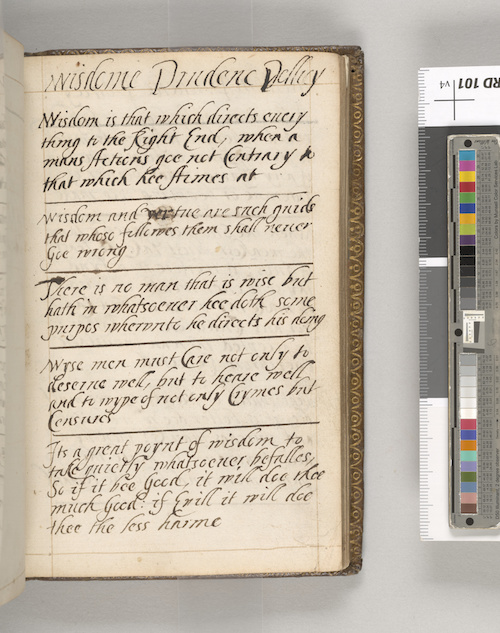 Wisdome Prudenc Pollicy
Wisdom is that which directs euery
thing to the Right End, when a
mans Actions goe not Contrary to
that which hee Aimes at
Wisdom and vertue are such guids
that whoso followes them shall neuer
Goe wrong
There is no man that is wise but
hath in whatsoeuer hee doth some
purpos wherunto he directs his doing
Wyse men must Care not only to
deserue well, but to heare well
and to wype of not only Crymes but
Censures
Its a great poynt of wisdom to
take quietly whatsoeuer befalles,
So if it bee Good, it will doe thee
much Good: if Euill it will doe
thee the less harme
RD 101
v4